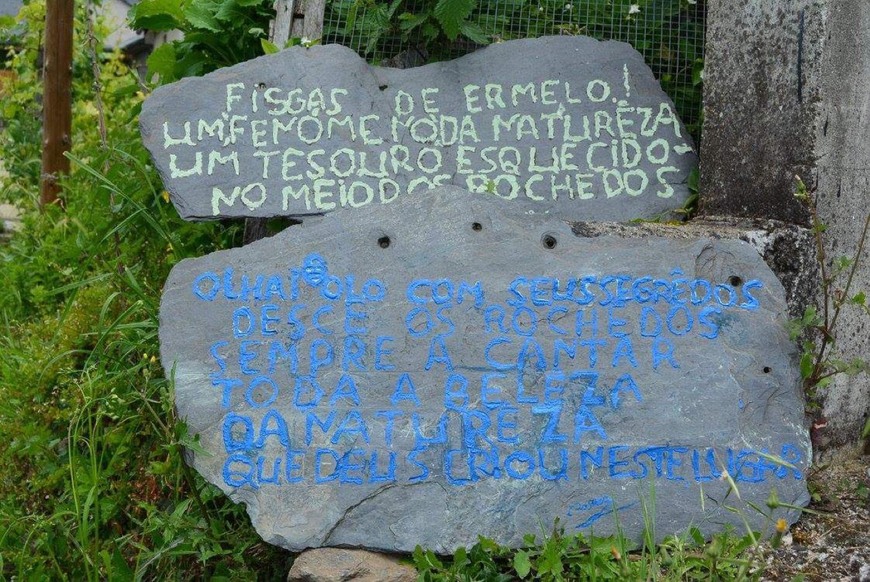 FISGAS DE ERMELO.!
UM FENÓMENO DA NATURÊZA
UM TESOURO ESQUECIDO-
NO MEIO DOS ROCHEDOS
OLHAI O OLO COM SEUS SEGRÊDOS
DESCE OS ROCHEDOS
SEMPRE A CANTAR
TODA A BELEZA
DA NATUREZA
QUE DEUS CRIOU NESTE LUGAR